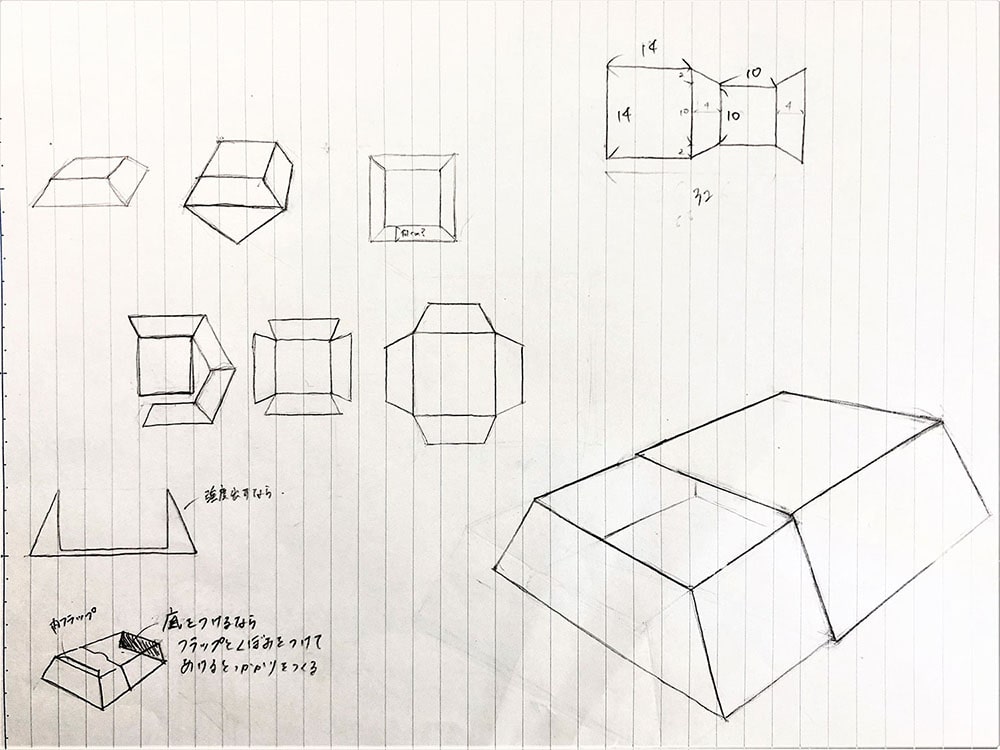 14
10
2
14
10
4
10
4
2
32
強度出すなら.
内フラップ
底をつけるなら
フラップとくぼみをつけて
あけるとっかかりをつくる